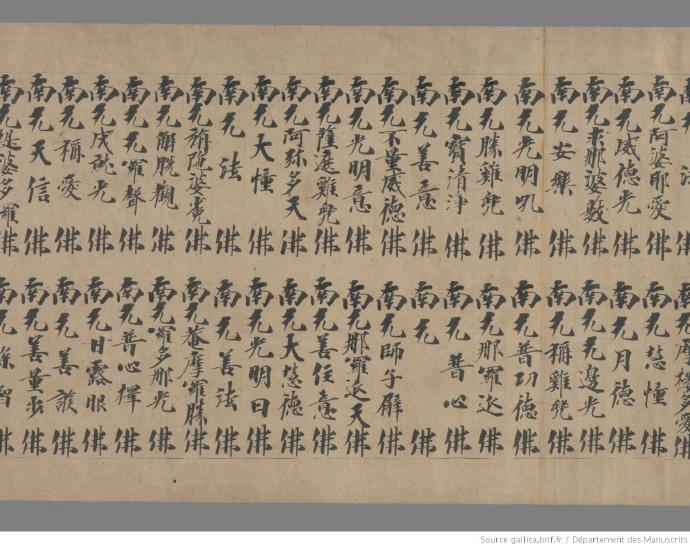 法佛
南无阿婆耶愛佛
南无威德光佛
南无求那婆藪佛
南无安樂佛
南无光明吼佛
南无勝雞兜佛
南无寶清淨佛
南无善意佛
南无不量威德佛
南无光明意佛
南无薩遮雞兜佛
南无阿弥多天佛
南无大幢佛
南无法佛
南无旃陀婆佛
南无解脫觀佛
南无无聲佛
南无成就光佛
南无稱愛佛
南无天信佛
南无提婆多羅佛
南无摩擇多愛佛
南无慧幢佛
南无月德佛
南无无邊光佛
南无稱雞兜佛
南无普功德佛
南无那羅延佛
南无普心佛
南无佛
南无師子臂佛
南无那羅延天佛
南无善住意佛
南无大慧德佛
南无光明日佛
南无善法佛
南无菴摩羅勝佛
南无囉多那光佛
南无普心擇佛
南无日露眼佛
南无善護佛
南无善量步佛
南无智佛
Source gallica.bnf.fr / Département des Manuscrits